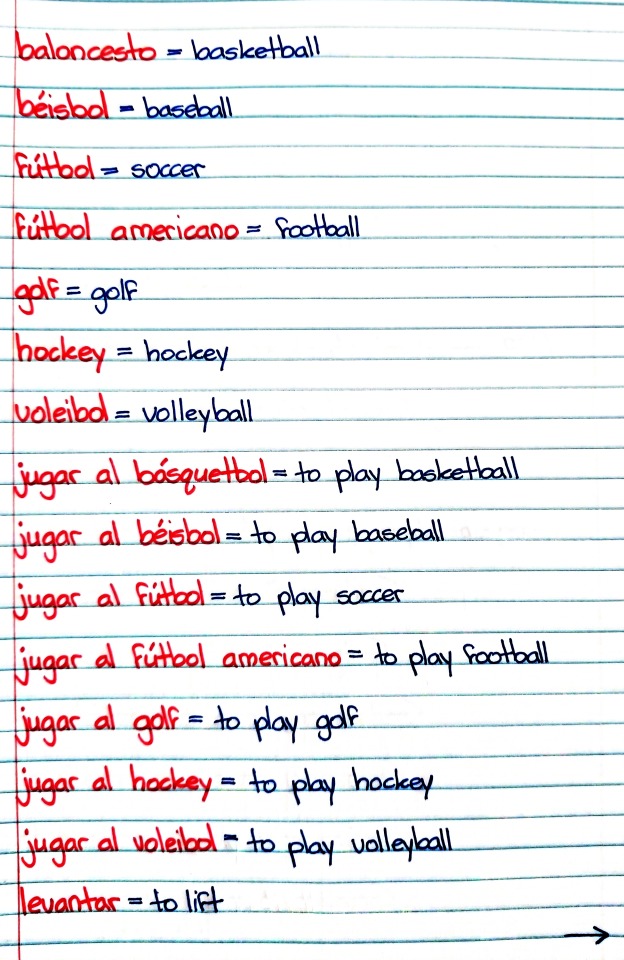 baloncesto = basketball
béisbol = baseball
fútbol = soccer
fútbol americano = football
golf = golf
hockey = hockey
voleibol = volleyball
jugar al básquetbol = to play basketball
jugar al béisbol = to play baseball
jugar al fútbol = to play soccer
jugar al fútbol americano = to play football
jugar al golf = to play golf
jugar al hockey = to play hockey
jugar al voleibol = to play volleyball
levantar = to lift
→